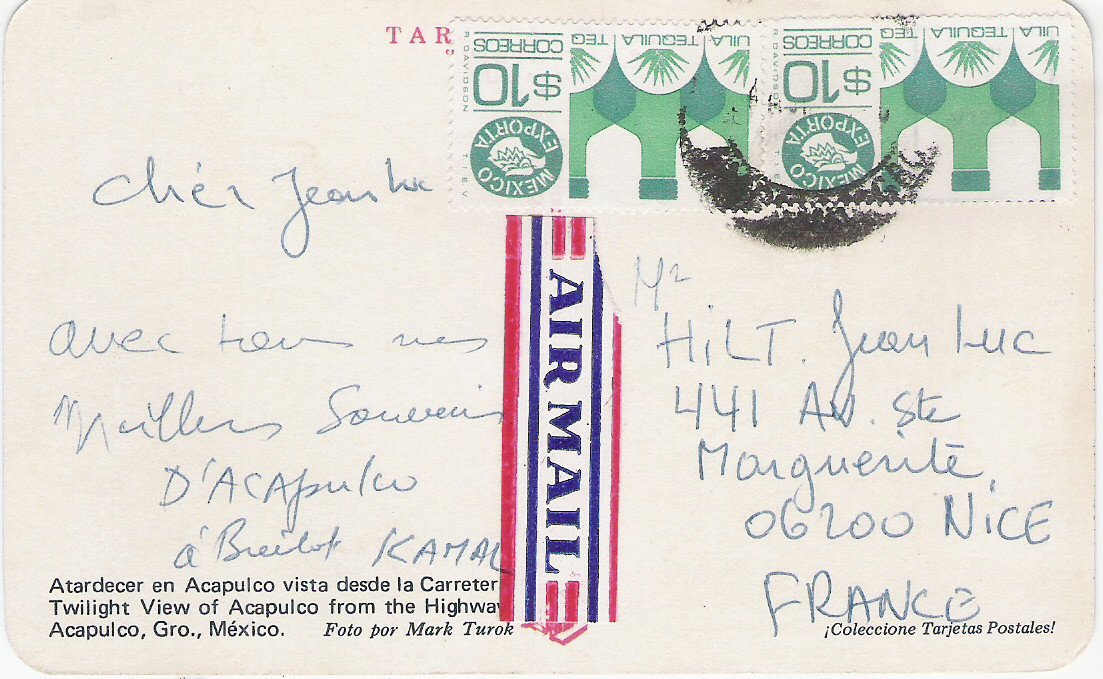 TAR
R DAVIDSON
CORREOS
$10
MEXICO EXPORTA
T.E.V.
TEQUILA TEQUILA
R DAVIDSON
CORREOS
$10
MEXICO EXPORTA
TEQUILA TEQUILA
Chér Jean Luc
avec tous mes
Meilleurs Souvenirs
D'ACApulco
à KAMAL
AIR MAIL
Mr
HiLT. Jean Luc
441 AV. Ste
Marguerite
06200 NiCE
FRANCE
Atardecer en Acapulco vista desde la Carreter
Twilight View of Acapulco from the Highway
Acapulco, Gro., México. Foto por Mark Turok
¡Coleccione Tarjetas Postales!